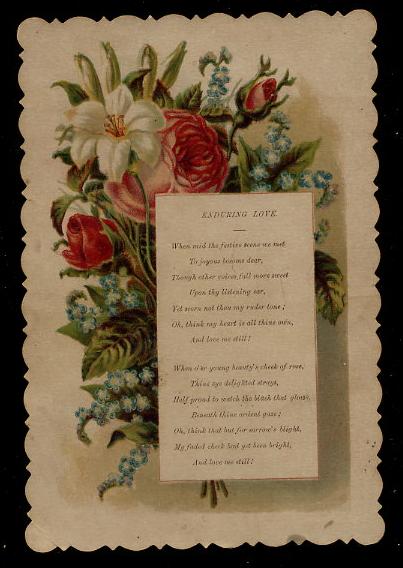 ENDURING LOVE.
When mid the festive scene we met
To joyous bosoms dear,
Though other voices fall more sweet
Upon thy listening ear,
Yet scorn not thou my ruder tone;
Oh, think my heart is all thine own,
And love me still!
When o'er young beauty's cheek of rose,
Thine eye delighted strays,
Half proud to watch the blush that glows,
Beneath thine ardent gaze;
Oh, think that but for sorrow's blight,
My faded cheek had yet been bright,
And love me still!